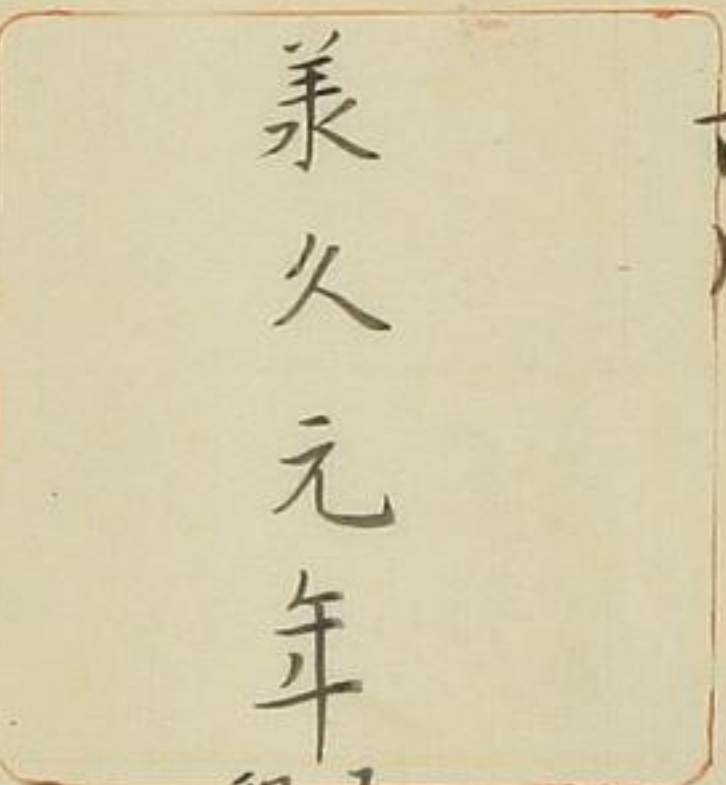 承久元年